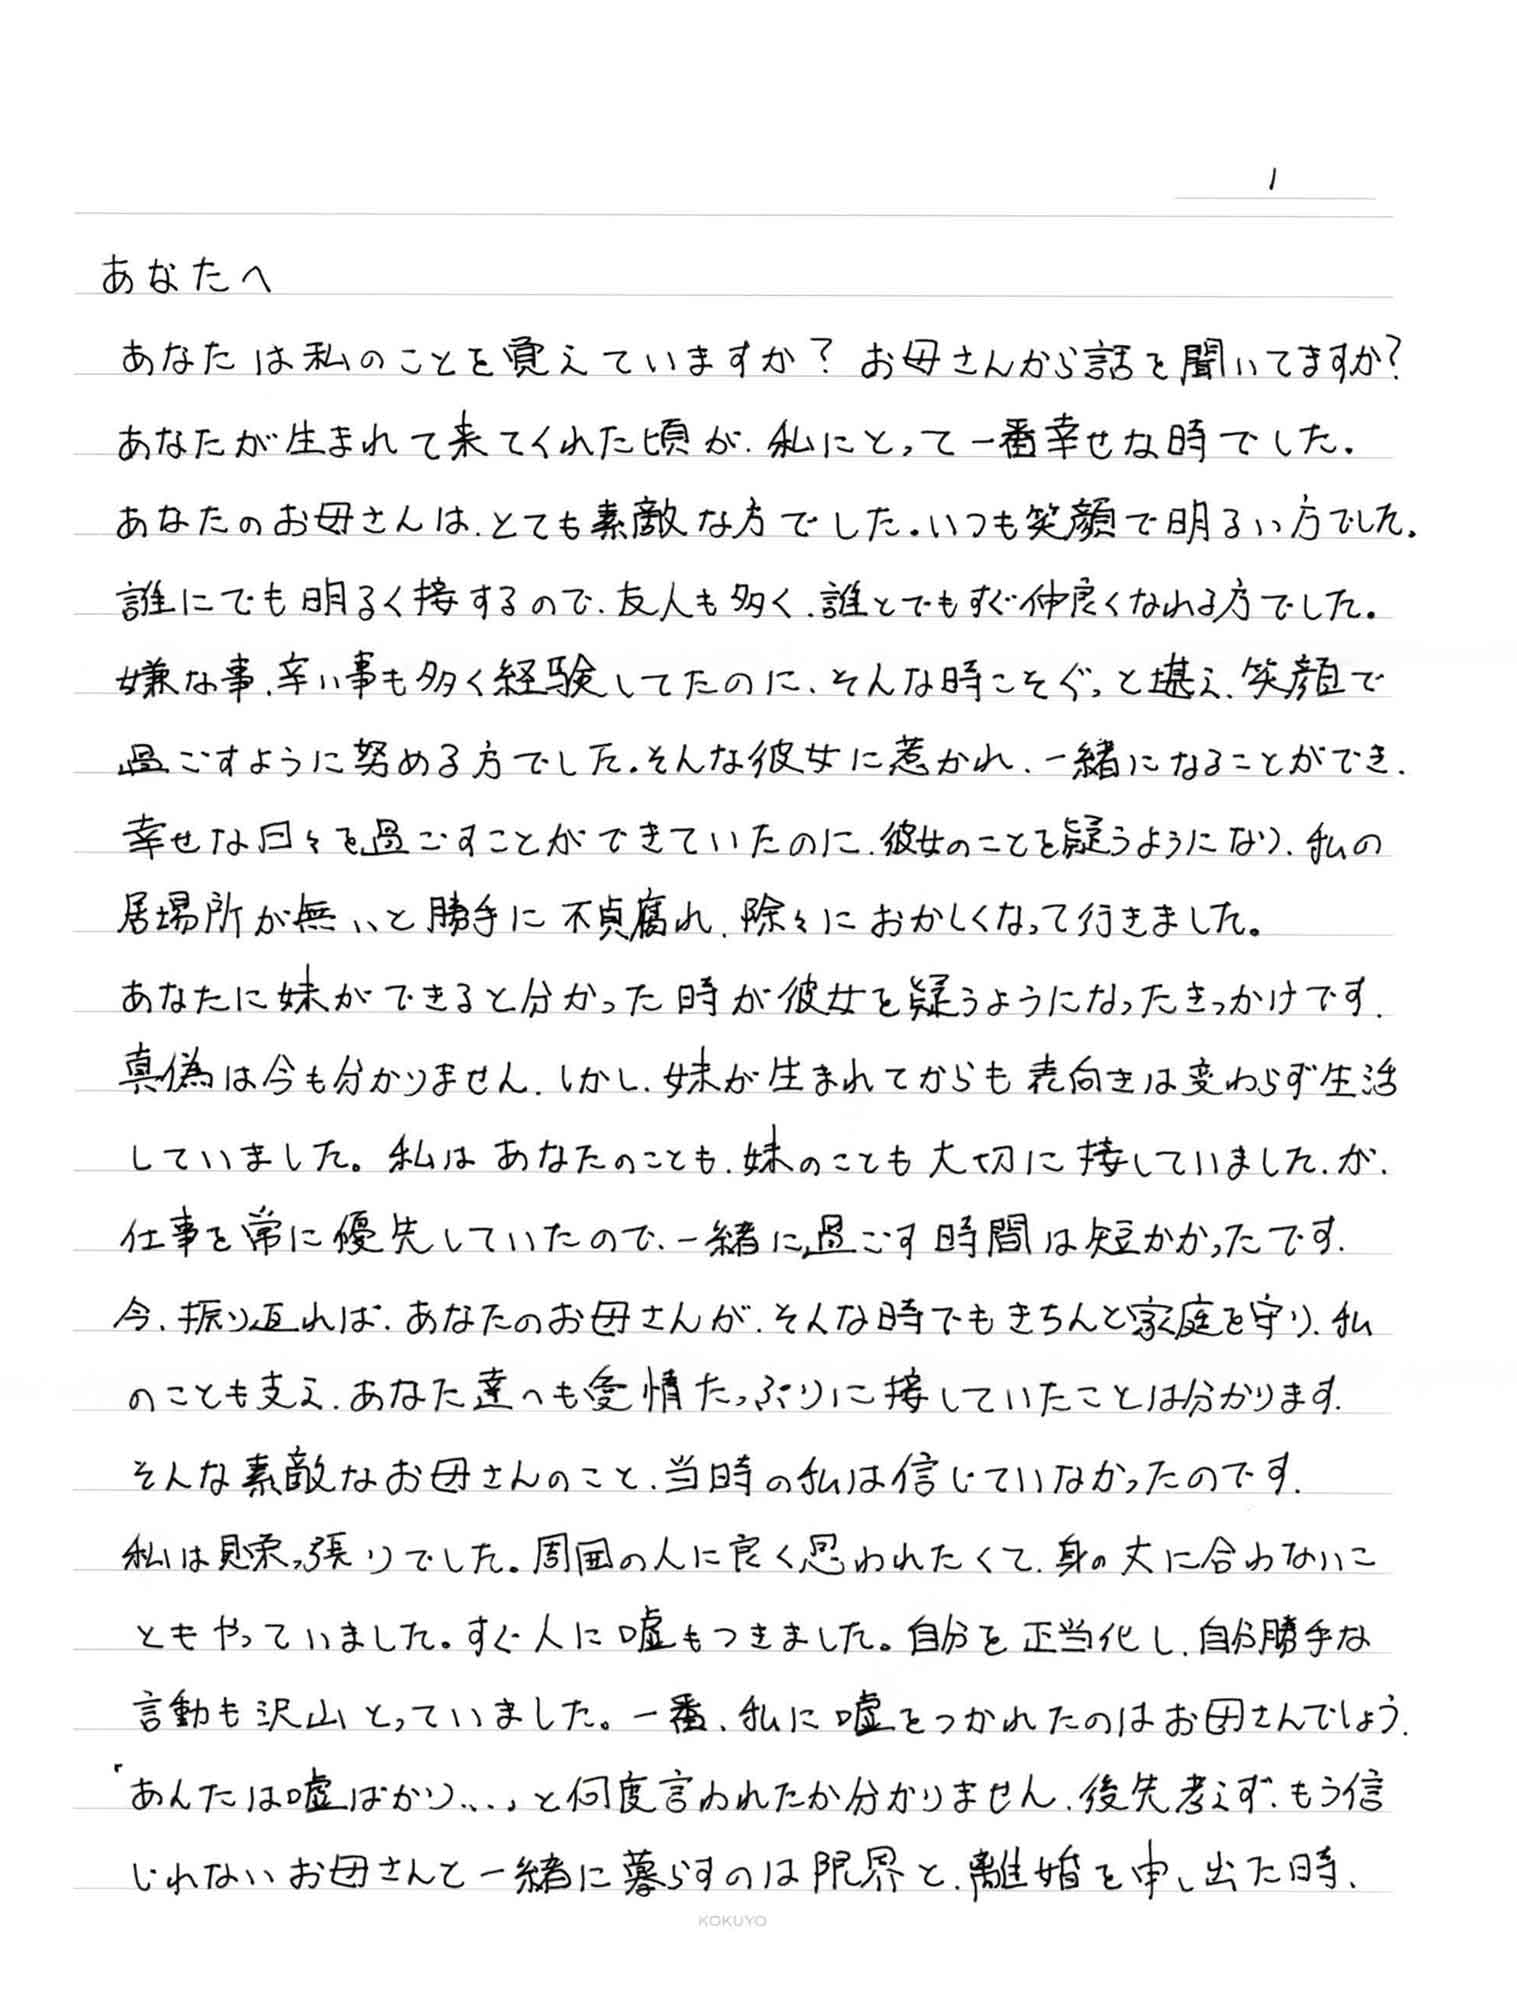 1
あなたへ
あなたは私のことを覚えていますか？お母さんから話を聞いてますか？
あなたが生まれて来てくれた頃が、私にとって一番幸せな時でした。
あなたのお母さんは、とても素敵な方でした。いつも笑顔で明るい方でした。
誰にでも明るく接するので、友人も多く、誰とでもすぐ仲良くなれる方でした。
嫌な事、辛い事も多く経験してたのに、そんな時こそぐっと堪え、笑顔で
過ごすように努める方でした。そんな彼女に惹かれ、一緒になることができ、
幸せな日々を過ごすことができていたのに、彼女のことを疑うようになり、私の
居場所が無いと勝手に不貞腐れ、除々におかしくなって行きました。
あなたに妹ができると分かった時が彼女を疑うようになったきっかけです。
真偽は今も分かりません。しかし、妹が生まれてからも表向きは変わらず生活
していました。私はあなたのことも、妹のことも大切に接していました、が、
仕事を常に優先していたので、一緒に過ごす時間は短かかったです。
今、振り返れば、あなたのお母さんが、そんな時でもきちんと家庭を守り、私
のことも支え、あなた達へも愛情たっぷりに接していたことは分かります。
そんな素敵なお母さんのこと、当時の私は信じていなかったのです。
私は見栄っ張りでした。周囲の人に良く思われたくて、身の丈に合わないこ
ともやっていました。すぐ人に嘘もつきました。自分を正当化し、自分勝手な
言動も沢山とっていました。一番、私に嘘をつかれたのはお母さんでしょう。
「あんたは嘘ばかり、、、」と何度言われたか分かりません。後先考えず、もう信
じれないお母さんと一緒に暮らすのは限界と、離婚を申し出た時、
KOKUYO